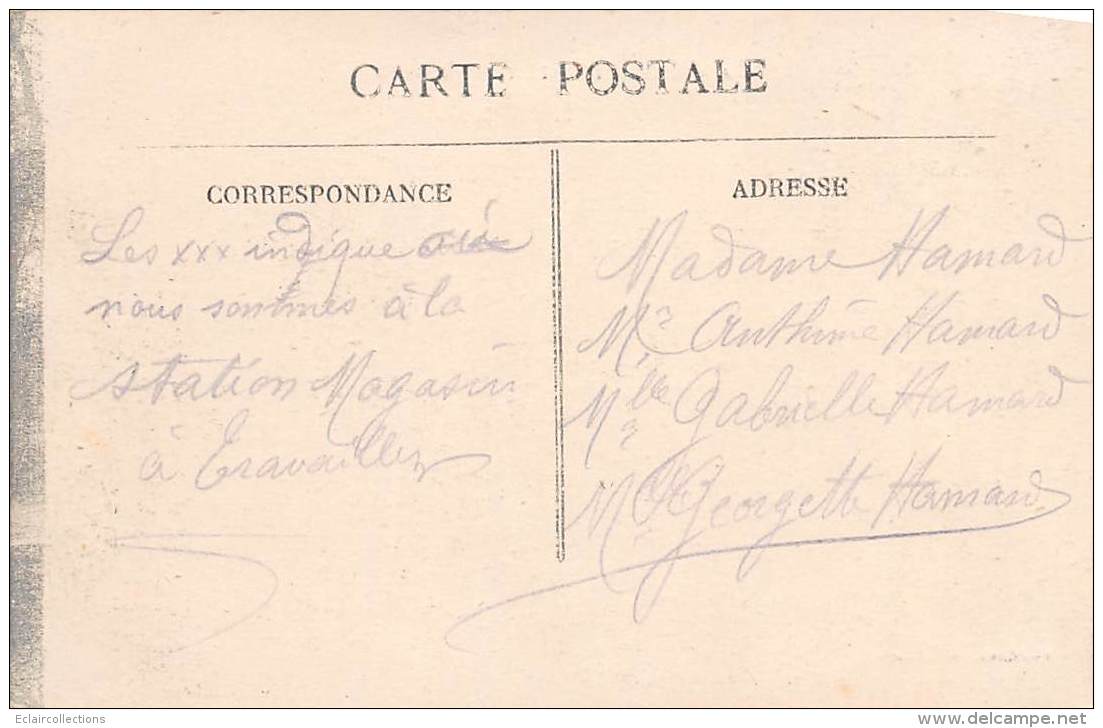 CARTE POSTALE
CORRESPONDANCE
Les xxx indique où
nous sommes à la
station Magasin
à travailler
ADRESSE
Madame Hamard
Mr Anthime Hamard
Mlle Gabrielle Hamard
Mlle Georgette Hamard
Eclaircollections
delcampe.net